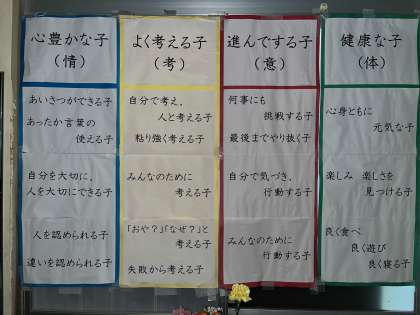 心豊かな子
（情）
あいさつができる子
あったか言葉の
使える子
自分を大切に，
人を大切にできる子
人を認められる子
違いを認められる子
よく考える子
（考）
自分で考え，
人と考える子
粘り強く考える子
みんなのために
考える子
「おや？」「なぜ？」と
考える子
失敗から考える子
進んでする子
（意）
何事にも
挑戦する子
最後までやり抜く子
自分で気づき，
行動する子
みんなのために
行動する子
健康な子
（体）
心身ともに
元気な子
楽しみ 楽しさを
見つける子
良く食べ
良く遊び
良く寝る子